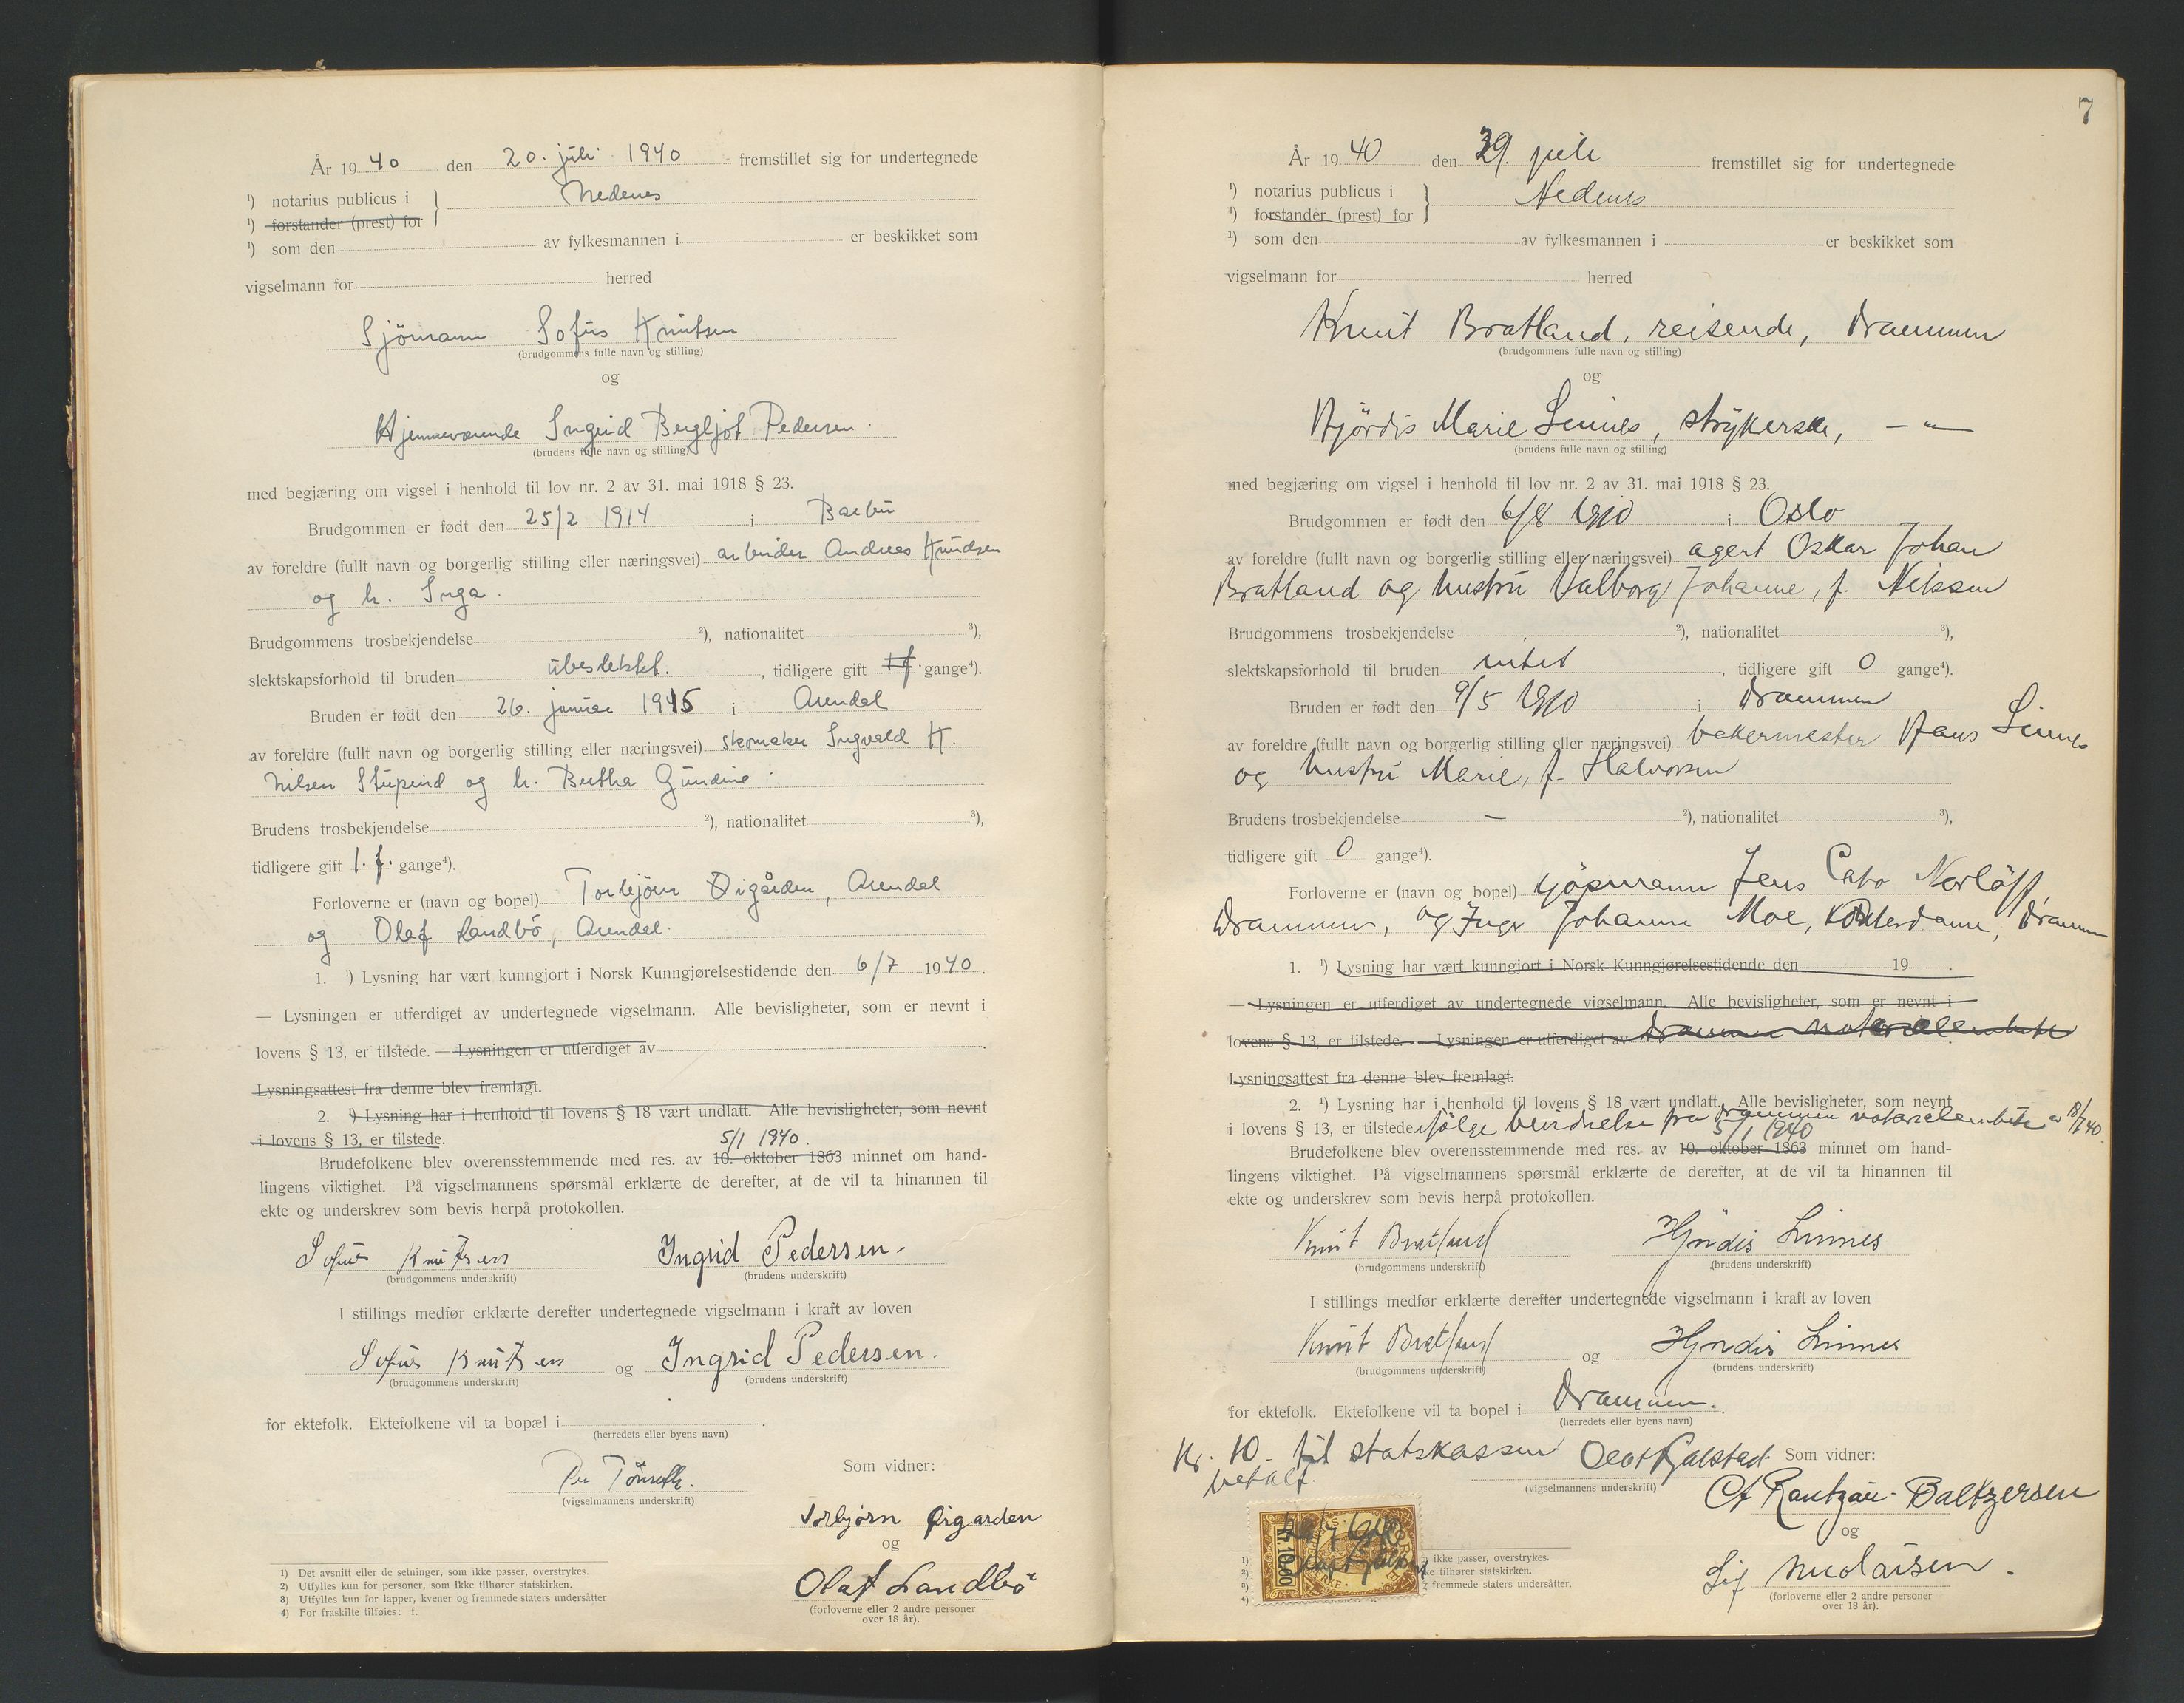 År 1940 den 20. juli 1940 fremstillet sig for undertegnede
¹) notarius publicus i } Nedenes
¹) forstander (prest) for
¹) som den av fylkesmannen i er beskikket som
vigselmann for herred
Sjömann Sofus Knutsen
(brudgommens fulle navn og stilling)
og
Hjemmeværende Ingrid Bergljot Pedersen.
(brudens fulle navn og stilling)
med begjæring om vigsel i henhold til lov nr. 2 av 31. mai 1918 § 23.
Brudgommen er født den 25/2 1914 i Barbu
av foreldre (fullt navn og borgerlig stilling eller næringsvei) arbeider Andreas Knudsen
og h. Inga.
Brudgommens trosbekjendelse ²), nationalitet ³),
slektskapsforhold til bruden ubeslektet., tidligere gift gange⁴).
Bruden er født den 26. januar 1915 i Arendal
av foreldre (fullt navn og borgerlig stilling eller næringsvei) skomaker Ingvald H.
Nilsen Stupeind og h. Bertha Gundine.
Brudens trosbekjendelse ²), nationalitet ³),
tidligere gift 1. f. gange⁴).
Forloverne er (navn og bopel) Torbjörn Öigården, Arendal
og Olaf Landbö, Arendal.
1. ¹) Lysning har vært kunngjort i Norsk Kunngjørelsestidende den 6/7 1940.
— Lysningen er utferdiget av undertegnede vigselmann. Alle bevisligheter, som er nevnt i
lovens § 13, er tilstede. — Lysningen er utferdiget av .
Lysningsattest fra denne blev fremlagt.
2. ¹) Lysning har i henhold til lovens § 18 vært undlatt. Alle bevisligheter, som nevnt
i lovens § 13, er tilstede. 5/1 1940.
Brudefolkene blev overensstemmende med res. av 10. oktober 1863 minnet om hand-
lingens viktighet. På vigselmannens spørsmål erklærte de derefter, at de vil ta hinannen til
ekte og underskrev som bevis herpå protokollen.
Sofus Knutsen Ingrid Pedersen.
(brudgommens underskrift) (brudens underskrift)
I stillings medfør erklærte derefter undertegnede vigselmann i kraft av loven
Sofus Knutsen og Ingrid Pedersen.
(brudgommens underskrift) (brudens underskrift)
for ektefolk. Ektefolkene vil ta bopæl i .
(herredets eller byens navn)
Som vidner:
Per Tönseth.
(vigselmannens underskrift)
Torbjørn Øigarden
og
Olaf Landbö
(forloverne eller 2 andre personer
over 18 år).
1) Det avsnitt eller de setninger, som ikke passer, overstrykes.
2) Utfylles kun for personer, som ikke tilhører statskirken.
3) Utfylles kun for lapper, kvener og fremmede staters undersåtter
4) For fraskilte tilføies: f.
7
År 1940 den 29. juli fremstillet sig for undertegnede
¹) notarius publicus i } Nedenes
¹) forstander (prest) for
¹) som den av fylkesmannen i er beskikket som
vigselmann for herred
Knut Bratland, reisende, Drammen
(brudgommens fulle navn og stilling)
og
Hjördis Marie Linnes, strykerske, — " —
(brudens fulle navn og stilling)
med begjæring om vigsel i henhold til lov nr. 2 av 31. mai 1918 § 23.
Brudgommen er født den 6/8 1910 i Oslo
av foreldre (fullt navn og borgerlig stilling eller næringsvei) agent Oskar Johan
Bratland og hustru Valborg Johanne, f. Nilssen
Brudgommens trosbekjendelse ²), nationalitet ³),
slektskapsforhold til bruden intet, tidligere gift 0 gange⁴).
Bruden er født den 9/5 1910 i Drammen
av foreldre (fullt navn og borgerlig stilling eller næringsvei) bakermester Hans Linnes
og hustru Marie, f. Halvorsen
Brudens trosbekjendelse — ²), nationalitet ³),
tidligere gift 0 gange⁴).
Forloverne er (navn og bopel) kjöpmann Jens Cato Nerlöff,
Drammen, og Inger Johanne Moe, kontordame, Drammen
1. ¹) Lysning har vært kunngjort i Norsk Kunngjørelsestidende den 19 .
— Lysningen er utferdiget av undertegnede vigselmann. Alle bevisligheter, som er nevnt i
lovens § 13, er tilstede. — Lysningen er utferdiget av Drammen notarialembete
Lysningsattest fra denne blev fremlagt.
2. ¹) Lysning har i henhold til lovens § 18 vært undlatt. Alle bevisligheter, som nevnt
i lovens § 13, er tilstede ifölge bevidnelse fra Drammen notarialembete av 18/7 40.
5/1 1940
Brudefolkene blev overensstemmende med res. av 10. oktober 1863 minnet om hand-
lingens viktighet. På vigselmannens spørsmål erklærte de derefter, at de vil ta hinannen til
ekte og underskrev som bevis herpå protokollen.
Knut Bratland Hjördis Linnes
(brudgommens underskrift) (brudens underskrift)
I stillings medfør erklærte derefter undertegnede vigselmann i kraft av loven
Knut Bratland og Hjördis Linnes
(brudgommens underskrift) (brudens underskrift)
for ektefolk. Ektefolkene vil ta bopel i Drammen.
(herredets eller byens navn)
Kr. 10.- til statskassen Som vidner:
betalt.
(vigselmannens underskrift)
Cf Rantzau-Baltzersen
og
Sig Nicolaisen.
(forloverne eller 2 andre personer
over 18 år).
Kr. 10.00
1) ikke passer, overstrykes.
2) ke tilhører statskirken.
3) g fremmede staters undersåtter.
4)